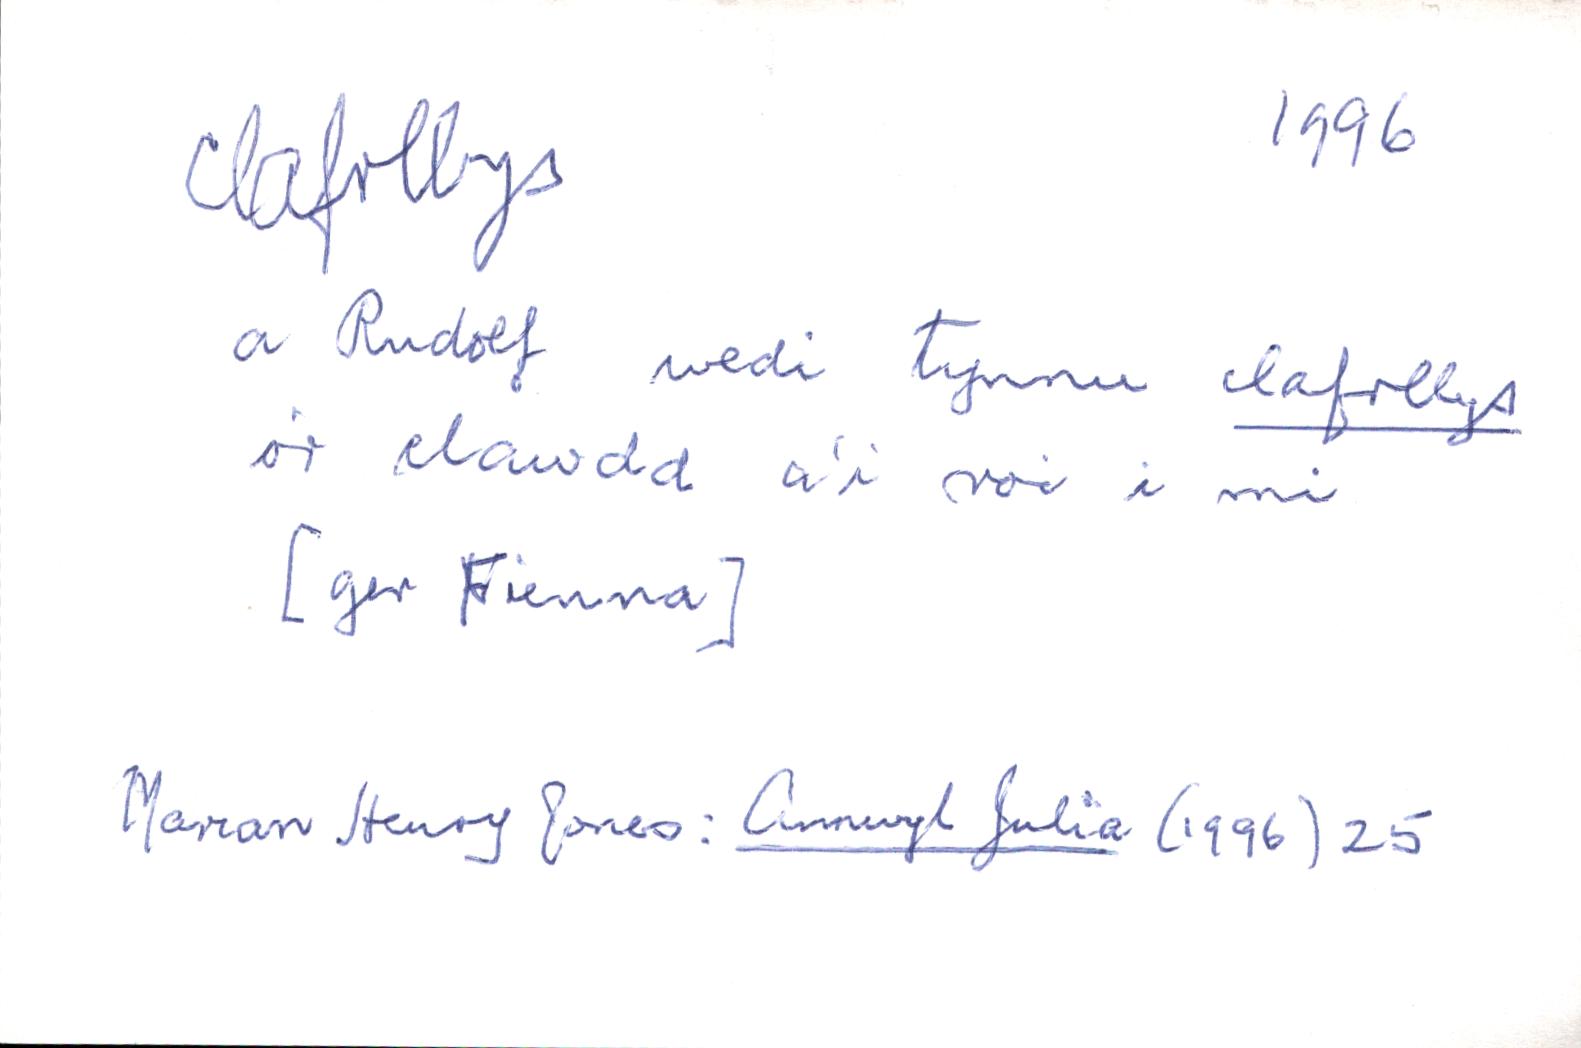 clafrllys
1996
a Rudolf wedi tynnu clafrllys
o'r clawdd a'i roi i mi
[ger Fienna]
Marian Henry Jones: Annwyl Julia (1996) 25